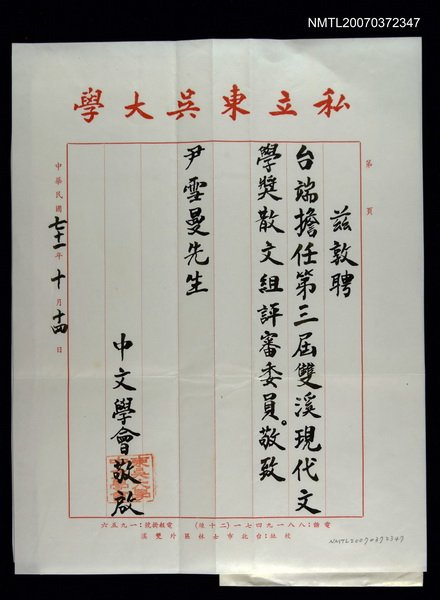 NMTL20070372347
私立東吳大學
第 頁
茲敦聘
台端擔任第三屆雙溪現代文
學獎散文組評審委員。敬致
尹雪曼先生
中文學會敬啟
中華民國七十一年十月十四日
電話：八八一九四七一（二十線） 電報掛號：一九五六
校址：台北市士林區外雙溪
NMTL20070372347